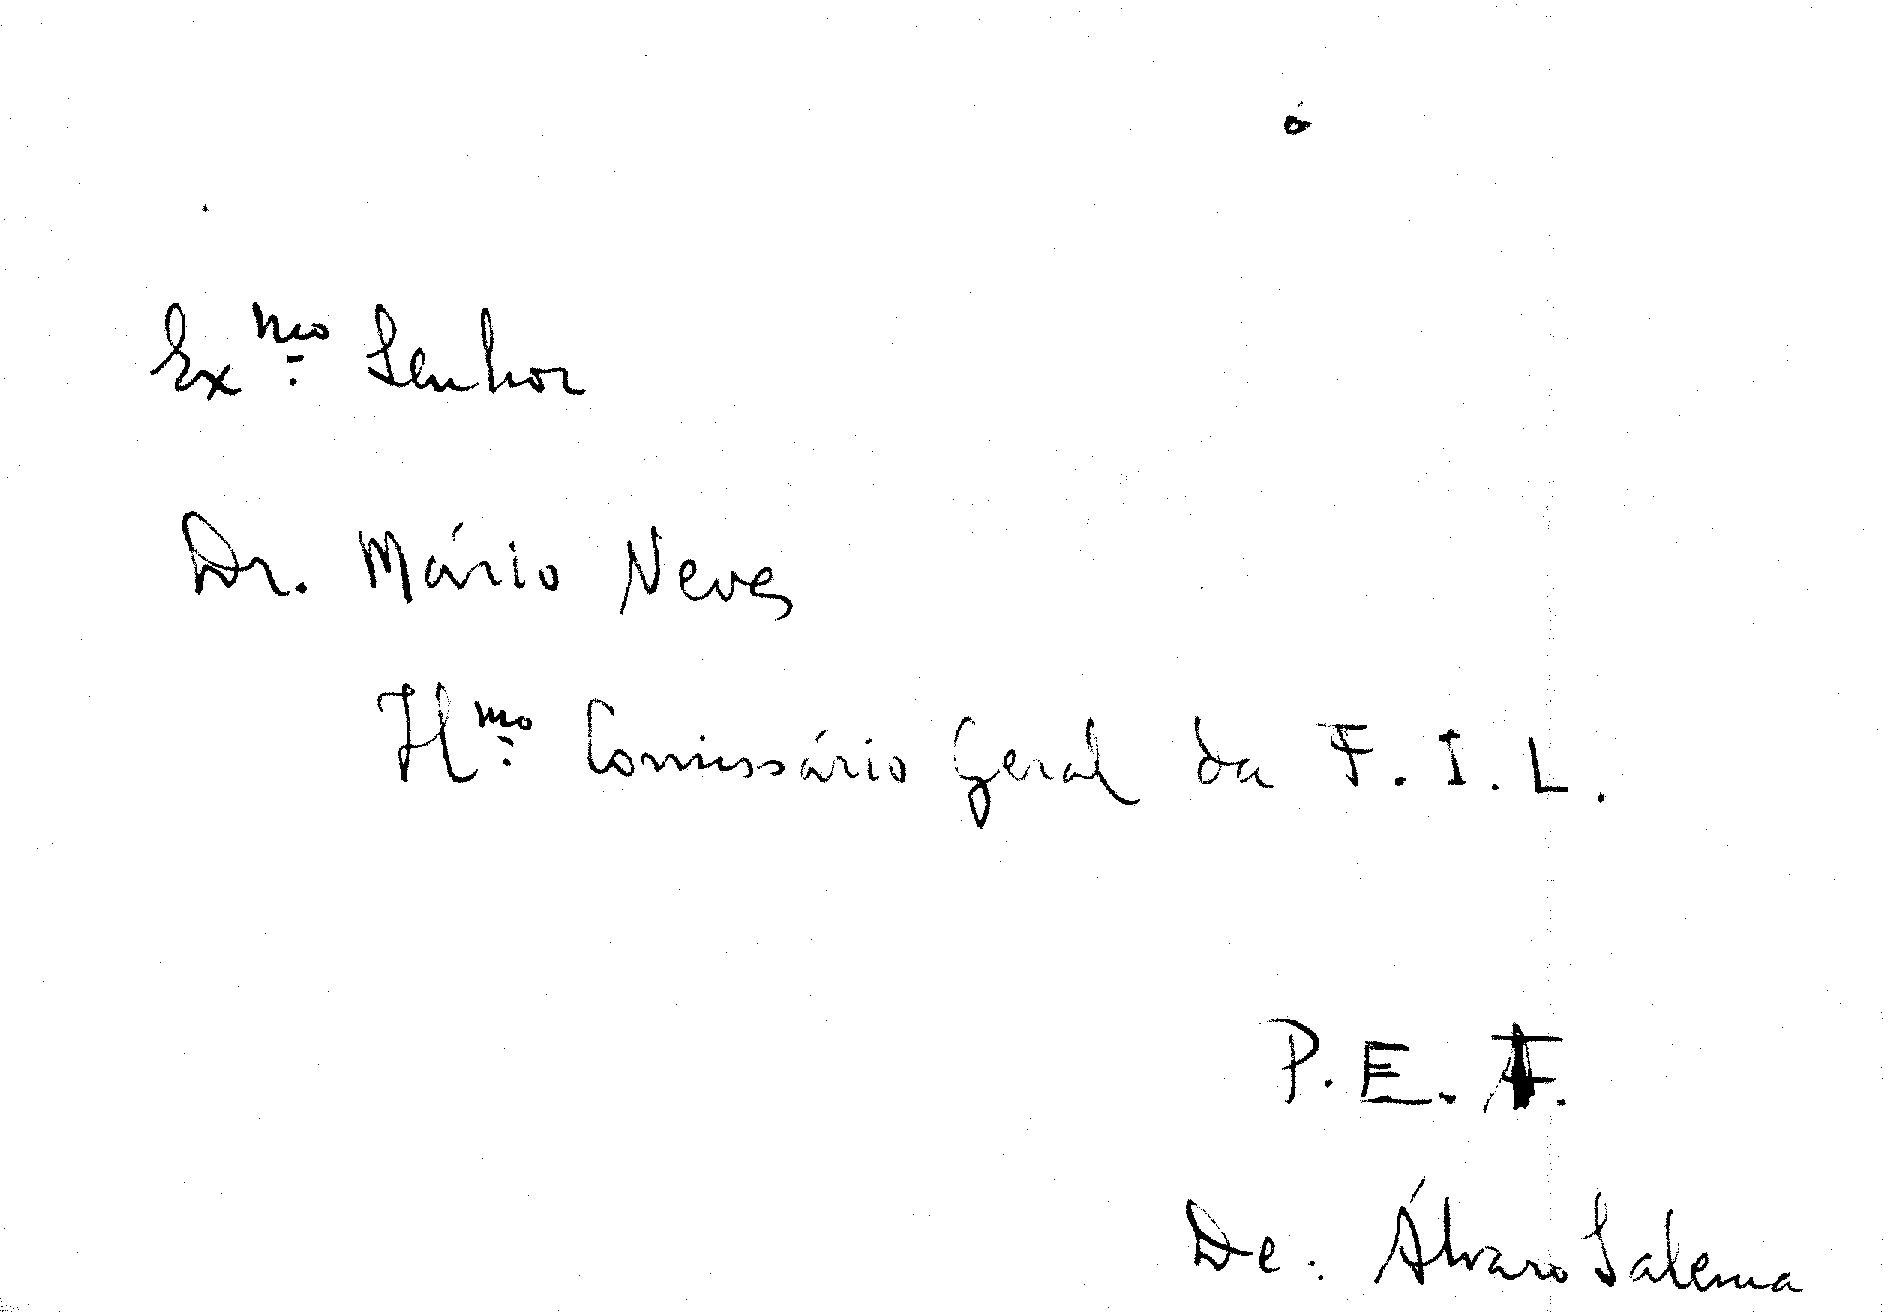 Exmo. Senhor
Dr. Mário Neves
Ilmo. Comissário Geral da F. I. L.
P. E. F.
De: Álvaro Salema